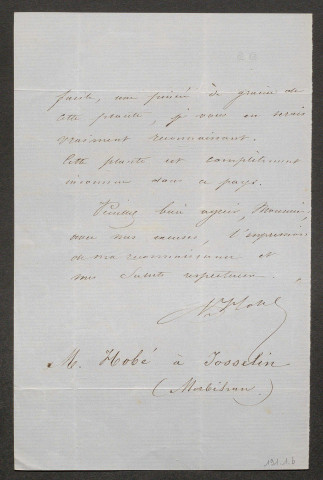 facile, une pincée de graine de
cette plante, je vous en serais
vraiment reconnaissant.
Cette plante est complètement
inconnue dans ce pays.
Veuillez bien agréer, Monsieur,
avec mes excuses, l'expression
de ma reconnaissance et
mes saluts respectueux.
M. Hobé à Josselin
(Morbihan.)